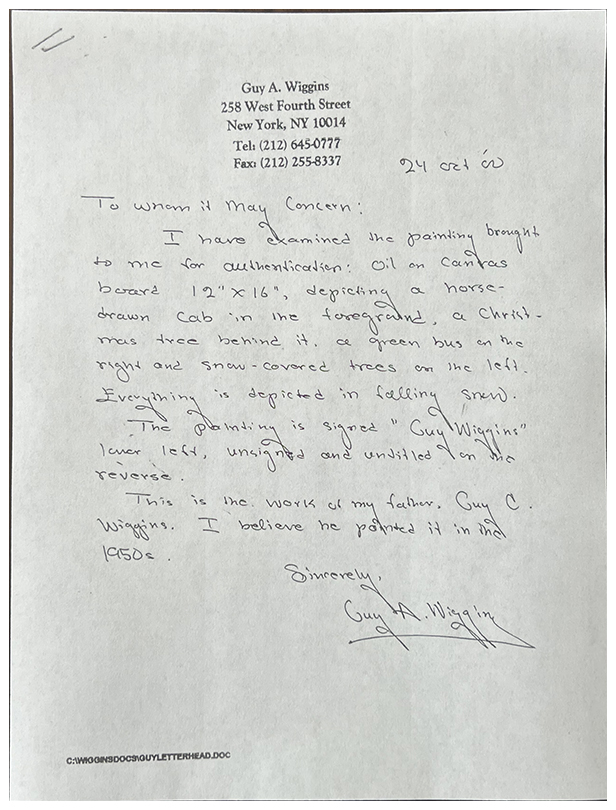 Guy A. Wiggins
258 West Fourth Street
New York, NY 10014
Tel: (212) 645-0777
Fax: (212) 255-8337
24 Oct 00
To whom it May Concern:
I have examined the painting brought
to me for authentication: Oil on Canvas
board 12" x 16", depicting a horse-
drawn Cab in the foreground, a Christ-
mas tree behind it, a green bus on the
right and snow-covered trees on the left.
Everything is depicted in falling snow.
The painting is signed "Guy Wiggins"
lower left, unsigned and untitled on the
reverse.
This is the work of my father, Guy C.
Wiggins. I believe he painted it in the
1950s.
Sincerely,
Guy A. Wiggins
C:\WIGGINSDOCS\GUYLETTERHEAD.DOC